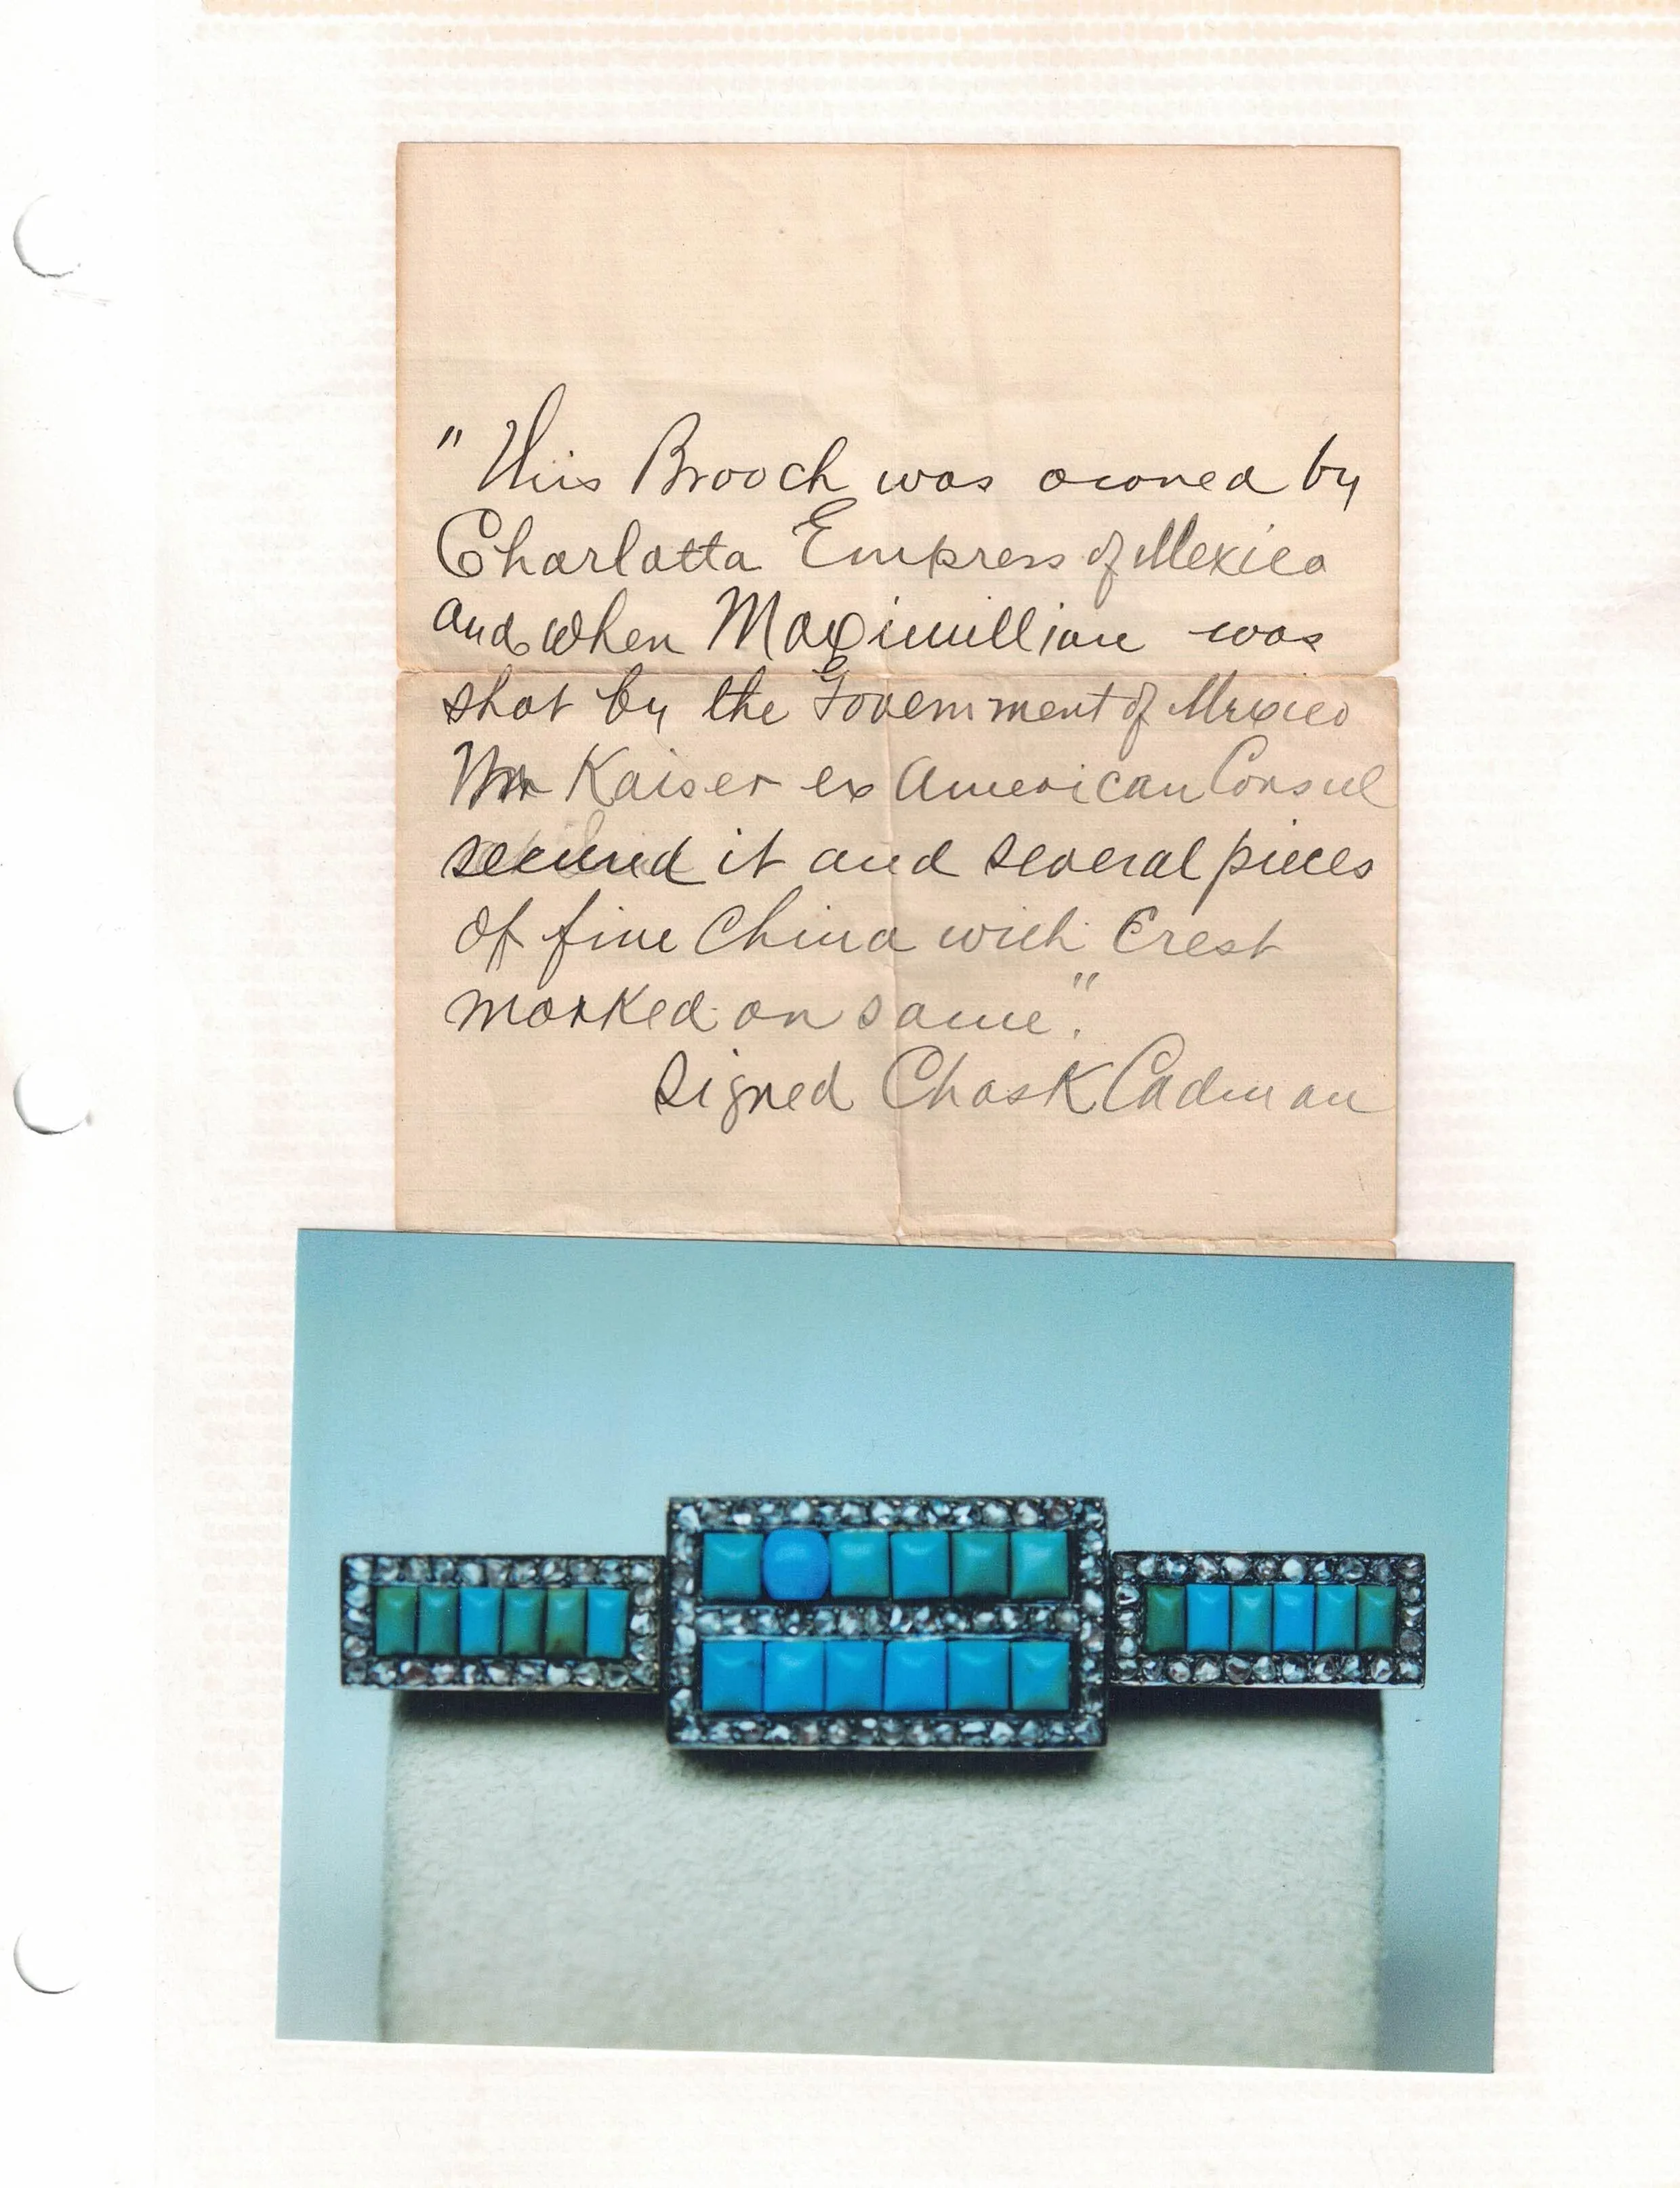 "This Brooch was owned by
Charlotta Empress of Mexico
and when Maximillian was
shot by the Government of Mexico
Mr Kaiser ex American Consul
secured it and several pieces
of fine China with Crest
marked on same."
Signed Chas K Cadman